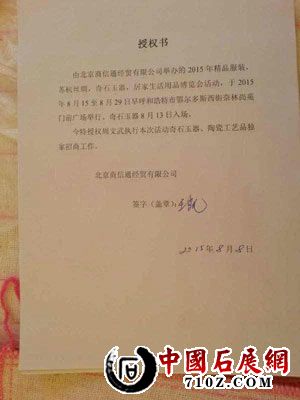 授权书
由北京商信通经贸有限公司举办的 2015 年精品服装、
苏杭丝绸、奇石玉器、居家生活用品博览会活动，于 2015
年 8 月 15 至 8 月 29 日早呼和浩特市鄂尔多斯西街奈林尚苑
门前广场举行，奇石玉器 8 月 13 日入场。
今特授权周文武执行本次活动奇石玉器、陶瓷工艺品独
家招商工作。
北京商信通经贸有限公司
签字（盖章）：
2015年8月8日
中國石展网
7102.COM